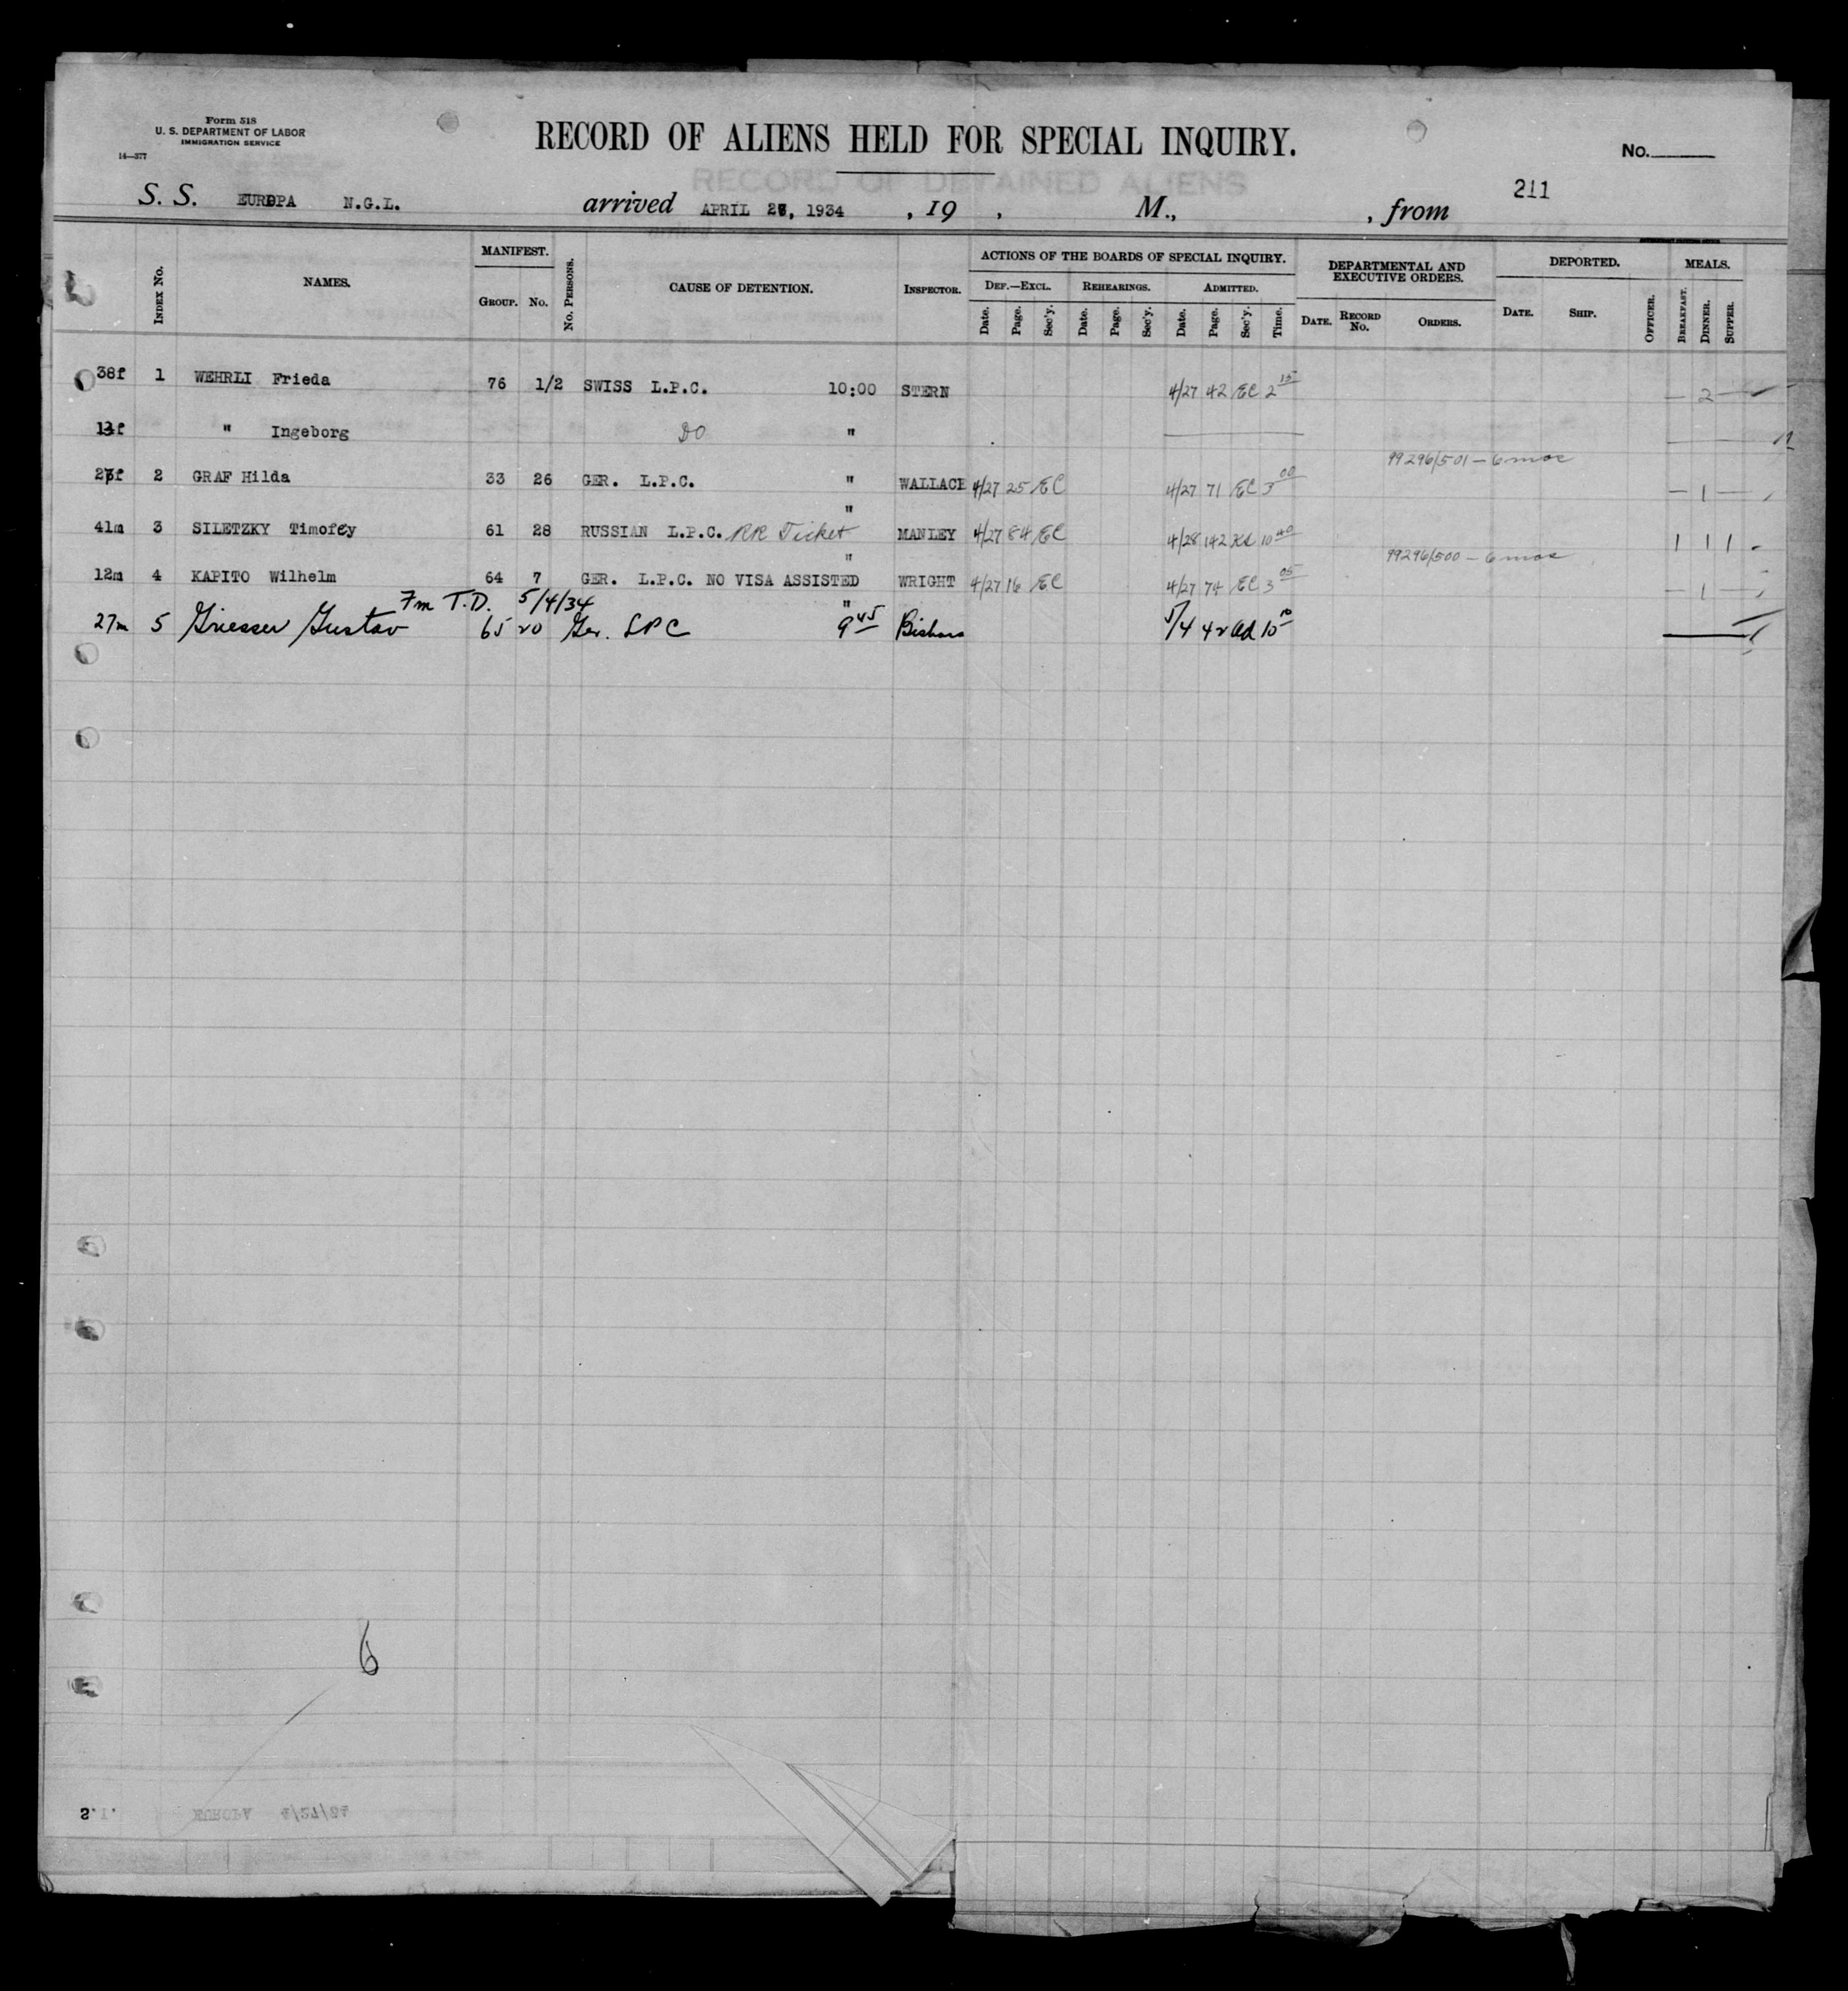 Form 518
U. S. DEPARTMENT OF LABOR
IMMIGRATION SERVICE
14—377
RECORD OF ALIENS HELD FOR SPECIAL INQUIRY.
No.
RECORD OF DETAINED ALIENS
211
S. S. EUROPA N.G.L. arrived APRIL 27, 1934, 19 , M., , from
Index No. NAMES. MANIFEST. Group. No. No. Persons. CAUSE OF DETENTION. Inspector. ACTIONS OF THE BOARDS OF SPECIAL INQUIRY. Def.—Excl. Date. Page. Sec'y. Rehearings. Date. Page. Sec'y. Admitted. Date. Page. Sec'y. Time. DEPARTMENTAL AND EXECUTIVE ORDERS. Date. Record No. Orders. DEPORTED. Date. Ship. Officer. MEALS. Breakfast. Dinner. Supper.
38f 1 WEHRLI Frieda 76 1/2 SWISS L.P.C. 10:00 STERN 4/27 42 EC 2 15 — 2 —
" Ingeborg DO "
99296/501 — 6 mos
2 GRAF Hilda 33 26 GER. L.P.C. " WALLACE 4/27 25 EC 4/27 71 EC 3 00 — 1 —
41m 3 SILETZKY Timofey 61 28 RUSSIAN L.P.C. RR Ticket " MANLEY 4/27 84 EC 4/28 142 10 40 1 1 1
99296/500 — 6 mos
12m 4 KAPITO Wilhelm 64 7 GER. L.P.C. NO VISA ASSISTED " WRIGHT 4/27 16 EC 4/27 74 EC 3 05 — 1 —
Fm T.D. 5/4/34 "
27m 5 Griesser Gustav 65 20 Ger. LPC 9 45 Bishara 5/4 42 10 10
6
S.I. EUROPA 4/27/34